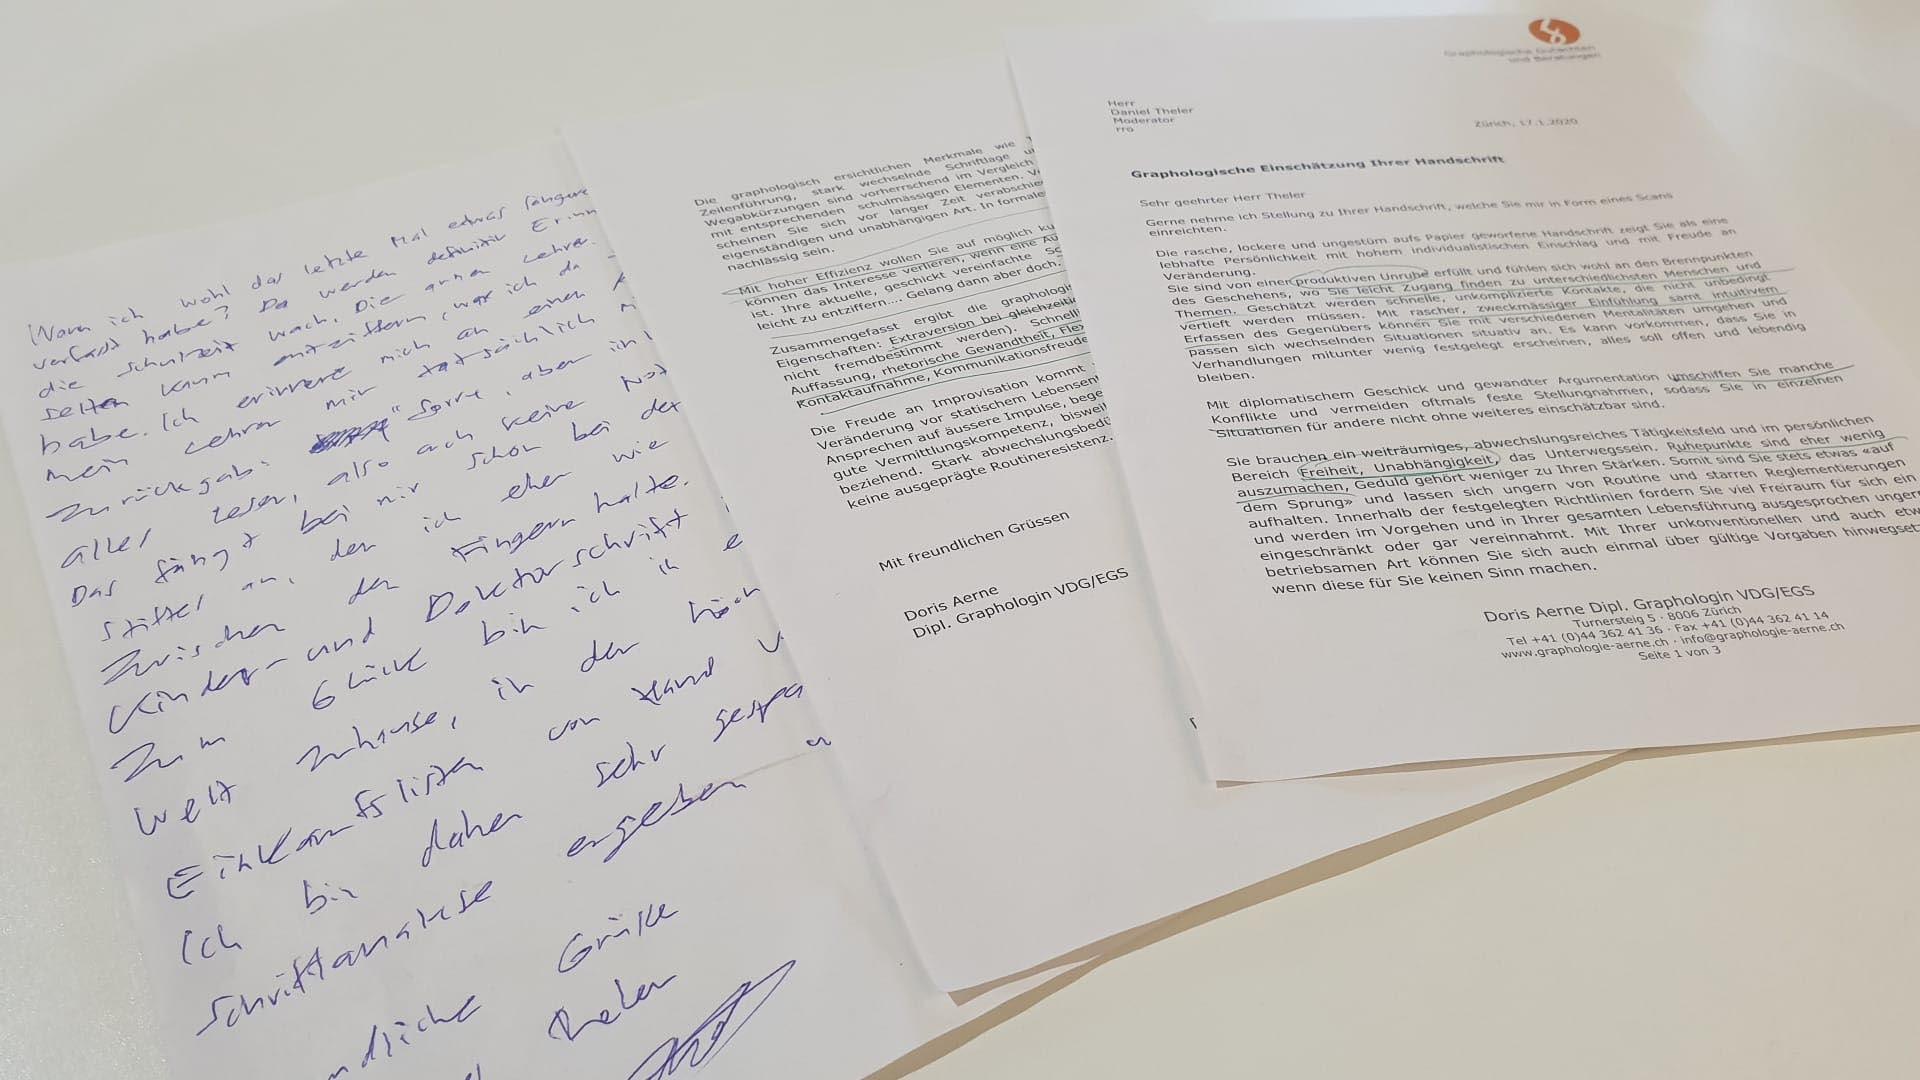 Wann ich wohl das letzte Mal etwas längere
verfasst habe? Da werden definitiv Erinn
die Schulzeit wach. Die armen Lehrer.
selten kaum entziffern, was ich da
habe. Ich erinnere mich an einen
mein Lehrer mir tatsächlich
zurückgab: "Sorry, aber ich
alles lesen, also auch keine Not
Das fängt bei mir schon bei der
Stifte an, den ich eher wie
zwischen den Fingern halte.
Kinder- und Doktorschrift
Zum Glück bin ich in
Welt zuhause, in der
Einkaufslisten von Hand
Ich bin daher sehr gespa
Schriftanalyse ergeben
Grüsse
Theler
Die graphologisch ersichtlichen Merkmale wie
Zeilenführung, stark wechselnde Schriftlage
Wegabkürzungen sind vorherrschend im Vergleich
mit entsprechenden schulmässigen Elementen.
scheinen Sie sich vor langer Zeit verabschie
eigenständigen und unabhängigen Art. In formale
nachlässig sein.
Mit hoher Effizienz wollen Sie auf möglich ku
können das Interesse verlieren, wenn eine Au
ist. Ihre aktuelle, geschickt vereinfachte Sc
leicht zu entziffern.... Gelang dann aber doch.
Zusammengefasst ergibt die graphologi
Eigenschaften: Extraversion bei gleichzeitig
nicht fremdbestimmt werden). Schnell
Auffassung, rhetorische Gewandtheit, Flex
Kontaktaufnahme, Kommunikationsfreude
Die Freude an Improvisation kommt
Veränderung vor statischem Lebensent
Ansprechen auf äussere Impulse, bege
gute Vermittlungskompetenz, bisweil
beziehend. Stark abwechslungsbedü
keine ausgeprägte Routineresistenz.
Mit freundlichen Grüssen
Doris Aerne
Dipl. Graphologin VDG/EGS
Graphologische Gutachten
und Beratungen
Herr
Daniel Theler
Moderator
rro
Zürich, 17.1.2020
Graphologische Einschätzung Ihrer Handschrift
Sehr geehrter Herr Theler
Gerne nehme ich Stellung zu Ihrer Handschrift, welche Sie mir in Form eines Scans
einreichten.
Die rasche, lockere und ungestüm aufs Papier geworfene Handschrift zeigt Sie als eine
lebhafte Persönlichkeit mit hohem individualistischen Einschlag und mit Freude an
Veränderung.
Sie sind von einer produktiven Unruhe erfüllt und fühlen sich wohl an den Brennpunkten
des Geschehens, wo Sie leicht Zugang finden zu unterschiedlichsten Menschen und
Themen. Geschätzt werden schnelle, unkomplizierte Kontakte, die nicht unbedingt
vertieft werden müssen. Mit rascher, zweckmässiger Einfühlung samt intuitivem
Erfassen des Gegenübers können Sie mit verschiedenen Mentalitäten umgehen und
passen sich wechselnden Situationen situativ an. Es kann vorkommen, dass Sie in
Verhandlungen mitunter wenig festgelegt erscheinen, alles soll offen und lebendig
bleiben.
Mit diplomatischem Geschick und gewandter Argumentation umschiffen Sie manche
Konflikte und vermeiden oftmals feste Stellungnahmen, sodass Sie in einzelnen
Situationen für andere nicht ohne weiteres einschätzbar sind.
Sie brauchen ein weiträumiges, abwechslungsreiches Tätigkeitsfeld und im persönlichen
Bereich Freiheit, Unabhängigkeit, das Unterwegssein. Ruhepunkte sind eher wenig
auszumachen, Geduld gehört weniger zu Ihren Stärken. Somit sind Sie stets etwas «auf
dem Sprung» und lassen sich ungern von Routine und starren Reglementierungen
aufhalten. Innerhalb der festgelegten Richtlinien fordern Sie viel Freiraum für sich ein
und werden im Vorgehen und in Ihrer gesamten Lebensführung ausgesprochen ungern
eingeschränkt oder gar vereinnahmt. Mit Ihrer unkonventionellen und auch etw
betriebsamen Art können Sie sich auch einmal über gültige Vorgaben hinwegsetz
wenn diese für Sie keinen Sinn machen.
Doris Aerne Dipl. Graphologin VDG/EGS
Turnersteig 5 · 8006 Zürich
Tel +41 (0)44 362 41 36 · Fax +41 (0)44 362 41 14
www.graphologie-aerne.ch · info@graphologie-aerne.ch
Seite 1 von 3